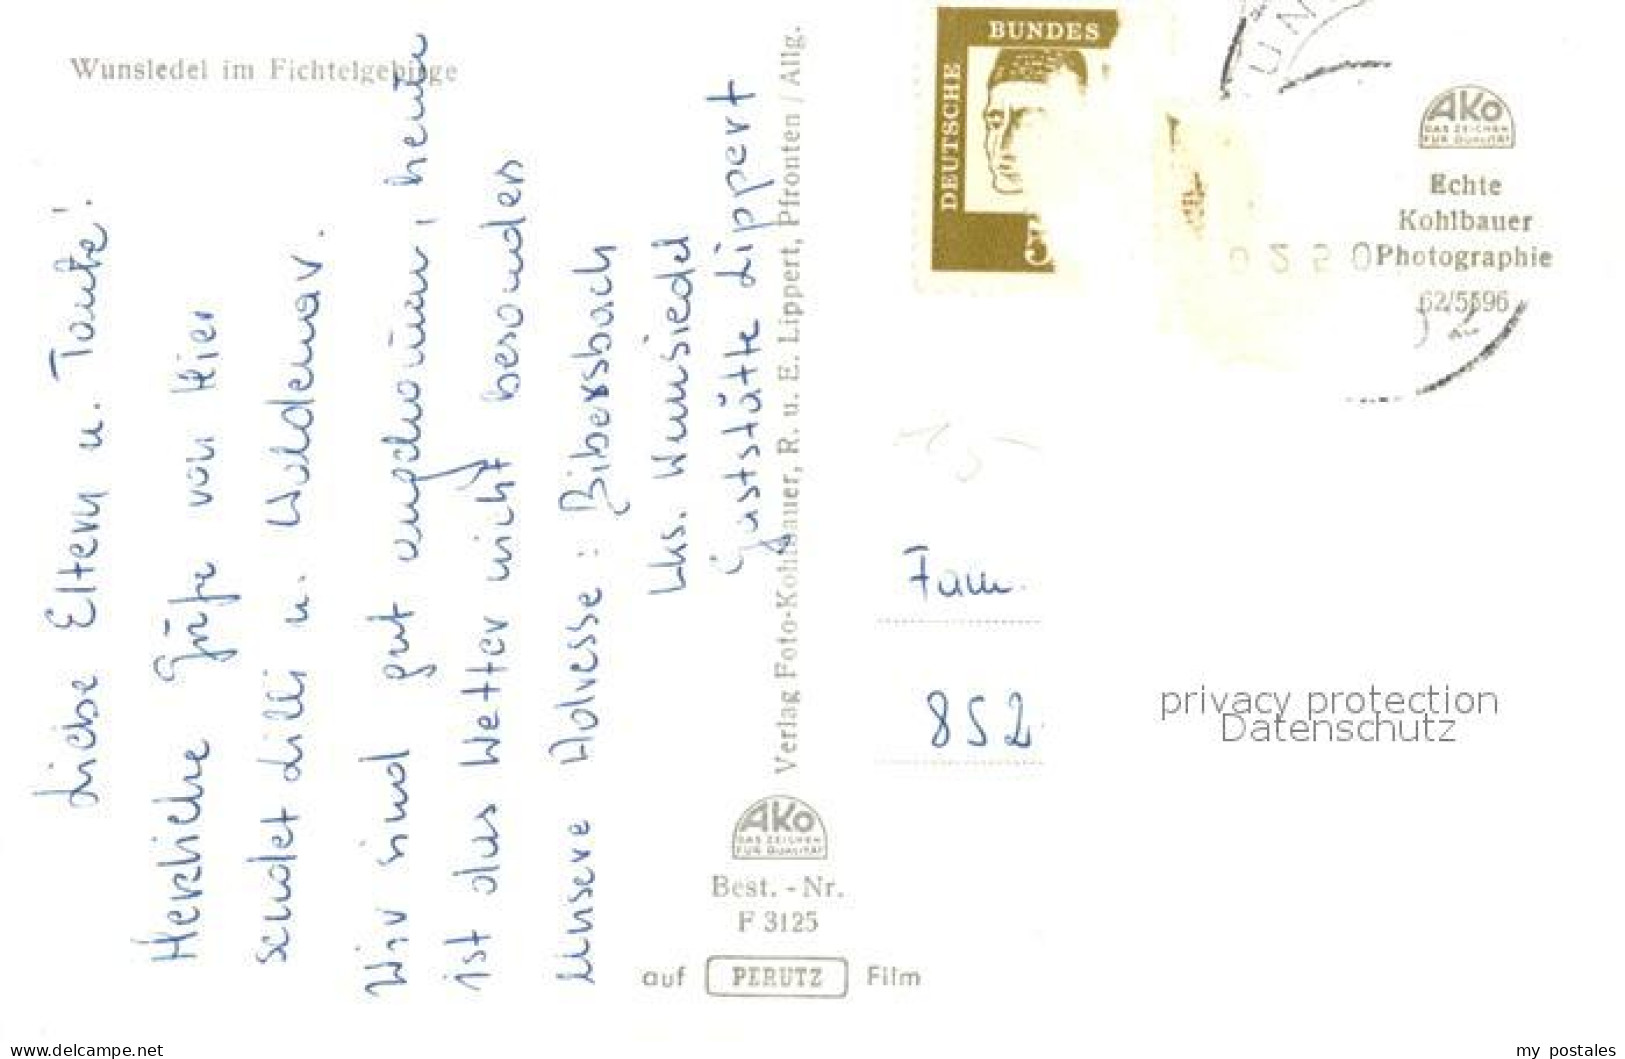 Wunsiedel im Fichtelgebirge
Liebe Eltern u. Tante!
Herzliche Grüße von Hier
sendet Lilli u. Woldemar.
Wir sind gut angekomen, heute
ist das Wetter nicht besonders
Unsere Adresse: Bibersbach
Lks. Wunsiedel
Gaststätte Lippert
Verlag Foto-Kohlbauer, R. u. E. Lippert, Pfronten / Allg.
AKO
DAS ZEICHEN
FÜR QUALITÄT
Best. - Nr.
F 3125
auf PERUTZ Film
DEUTSCHE BUNDES
5
AKO
DAS ZEICHEN
FÜR QUALITÄT
Echte
Kohlbauer
Photographie
62/5596
0250
15
Fam.
852
privacy protection
Datenschutz
www.delcampe.net
my_postales